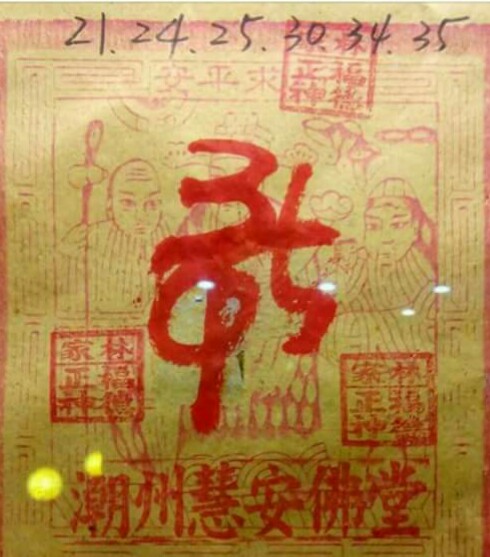 21.24.25.30.34.35
求平安
福德正神
林家福德正神
林家福德正神
潮州慧安佛堂